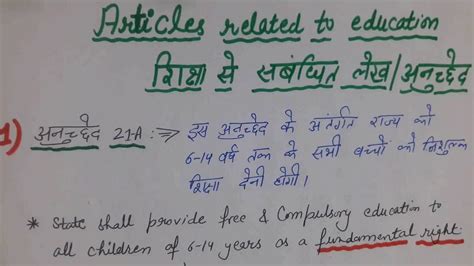 Articles related to education
शिक्षा से सबंधित लेख/अनुच्छेद
1) अनुच्छेद 21-A :⇒ इस अनुच्छेद के अंतर्गत राज्य को
6-14 वर्ष तक के सभी बच्चों को निशुल्क
शिक्षा देनी होगी।
* State shall provide free & Compulsory education to
all children of 6-14 years as a fundamental right.